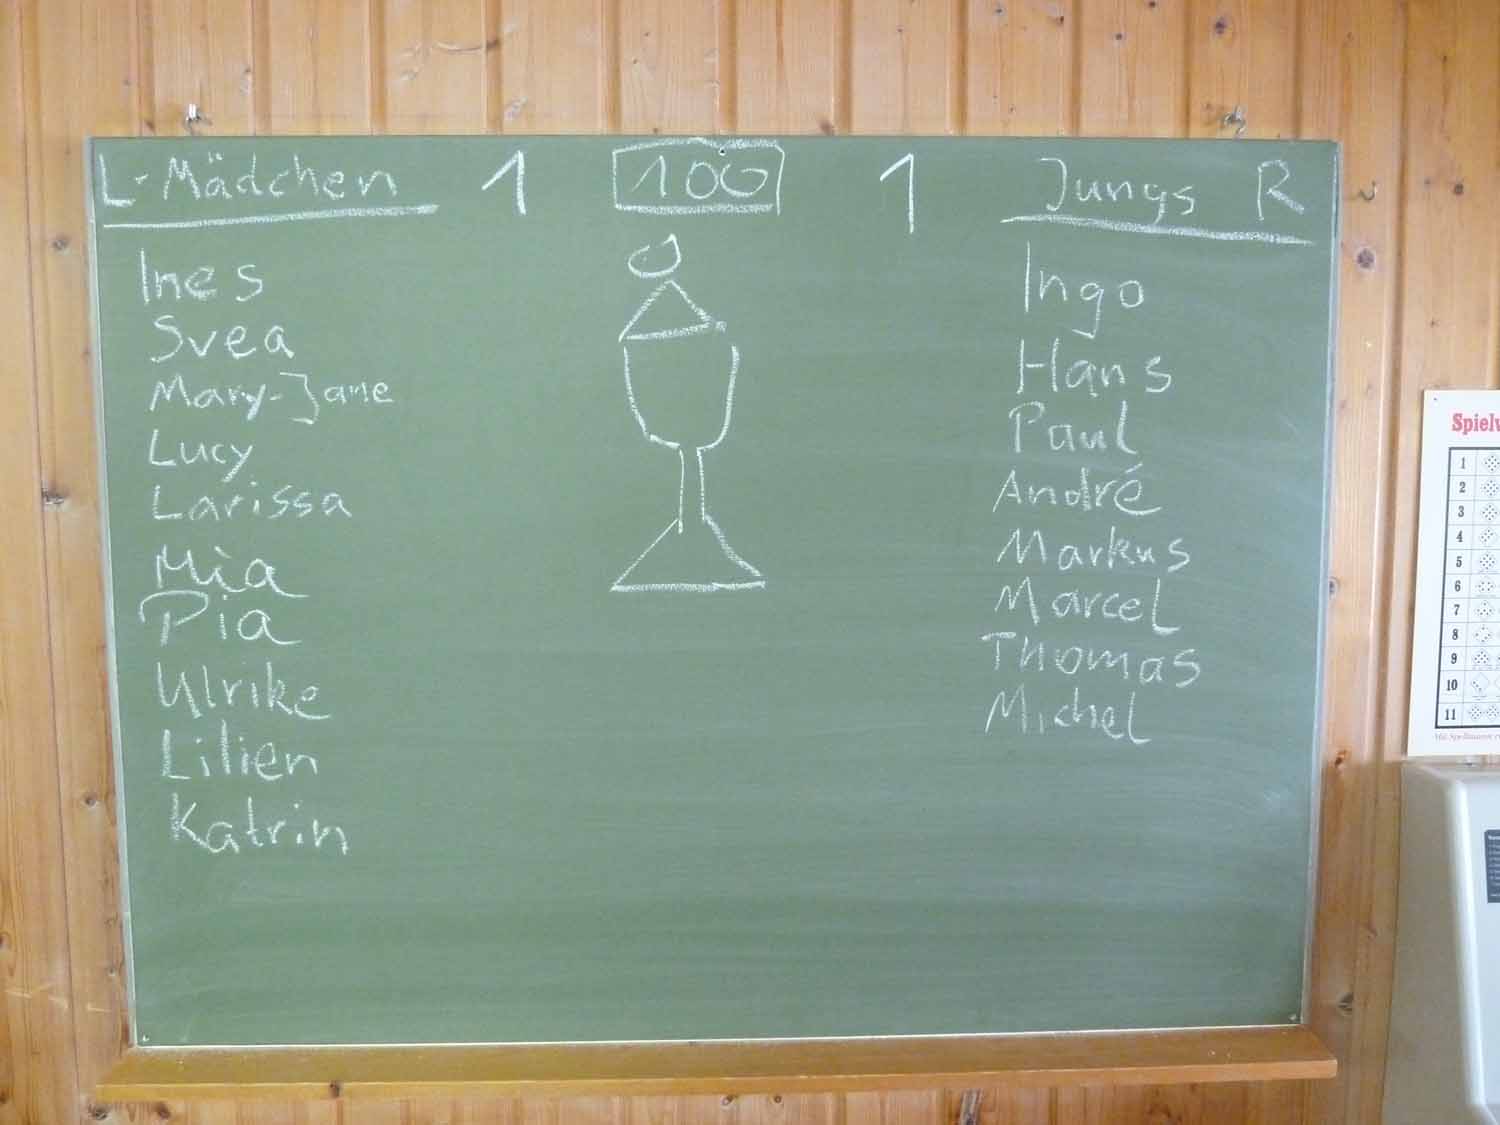 L-Mädchen 1 100 1 Jungs R
Ines
Svea
Mary-Jane
Lucy
Larissa
Mia
Pia
Ulrike
Lilien
Katrin
Ingo
Hans
Paul
André
Markus
Marcel
Thomas
Michel
Spielv
1
2
3
4
5
6
7
8
9
10
11